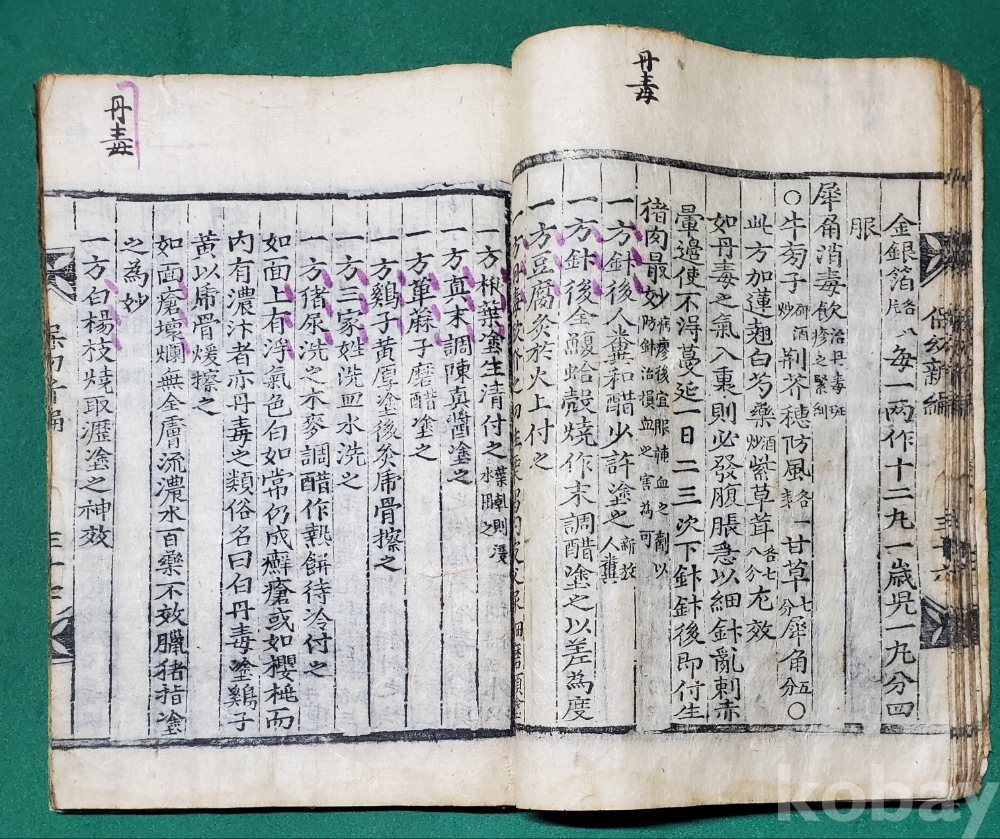 丹毒
金銀箔各八片每一兩作十二丸一歲児一丸分四
服
犀角消毒飮治丹毒斑疹之緊劑
○牛蒡子研酒炒荊芥穂防風各一錢甘草七分犀角五分○
此方加蓮翹白芍藥酒炒紫草茸各七八分尤效
如丹毒之氣入裏則必發腹脹急以細針亂刺赤
暈邉使不得蔓延一日二三次下針針後即付生
猪肉最妙病瘳後宜服補血之劑以防針治損血之害為可
一方針後人糞和醋少許塗之新放人糞
一方針後金鰒蛤殼燒作末調醋塗之以差為度
一方豆腐灸於火上付之
丹毒
一方根葉塗生清付之葉乾則浸水用之
一方真末調陳真醬塗之
一方萆麻子磨醋塗之
一方鷄子黃厚塗後灸虎骨擦之
一方三家姓洗血水洗之
一方猪尿洗之木麥調醋作熱餅待冷付之
如面上有浮氣色白如常仍成癬瘡或如櫻桃而
内有濃汁者亦丹毒之類俗名曰白丹毒塗鷄子
黃以虎骨煖擦之
如面瘡壞爛無全膚流濃水百藥不效臘猪脂塗
之為妙
一方白楊枝燒取瀝塗之神效
保幼新編
保幼新編